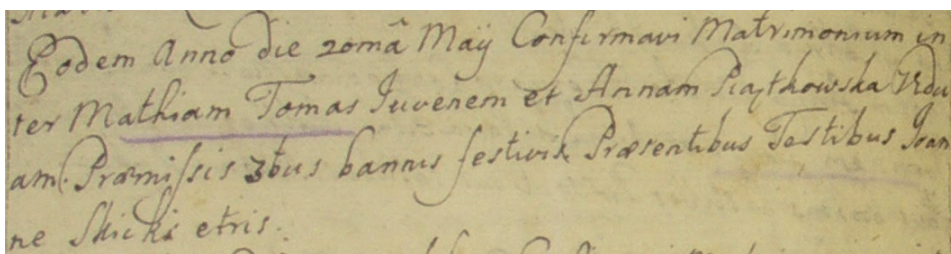 Eodem Anno die 20mâ Maÿ Confirmavi Matrimonium in
ter Mathiam Tomas Juvenem et Annam Piątkowska Vidu
am. Præmissis 3bus bannis festivis Præsentibus Testibus Joan
ne Skicki etris.